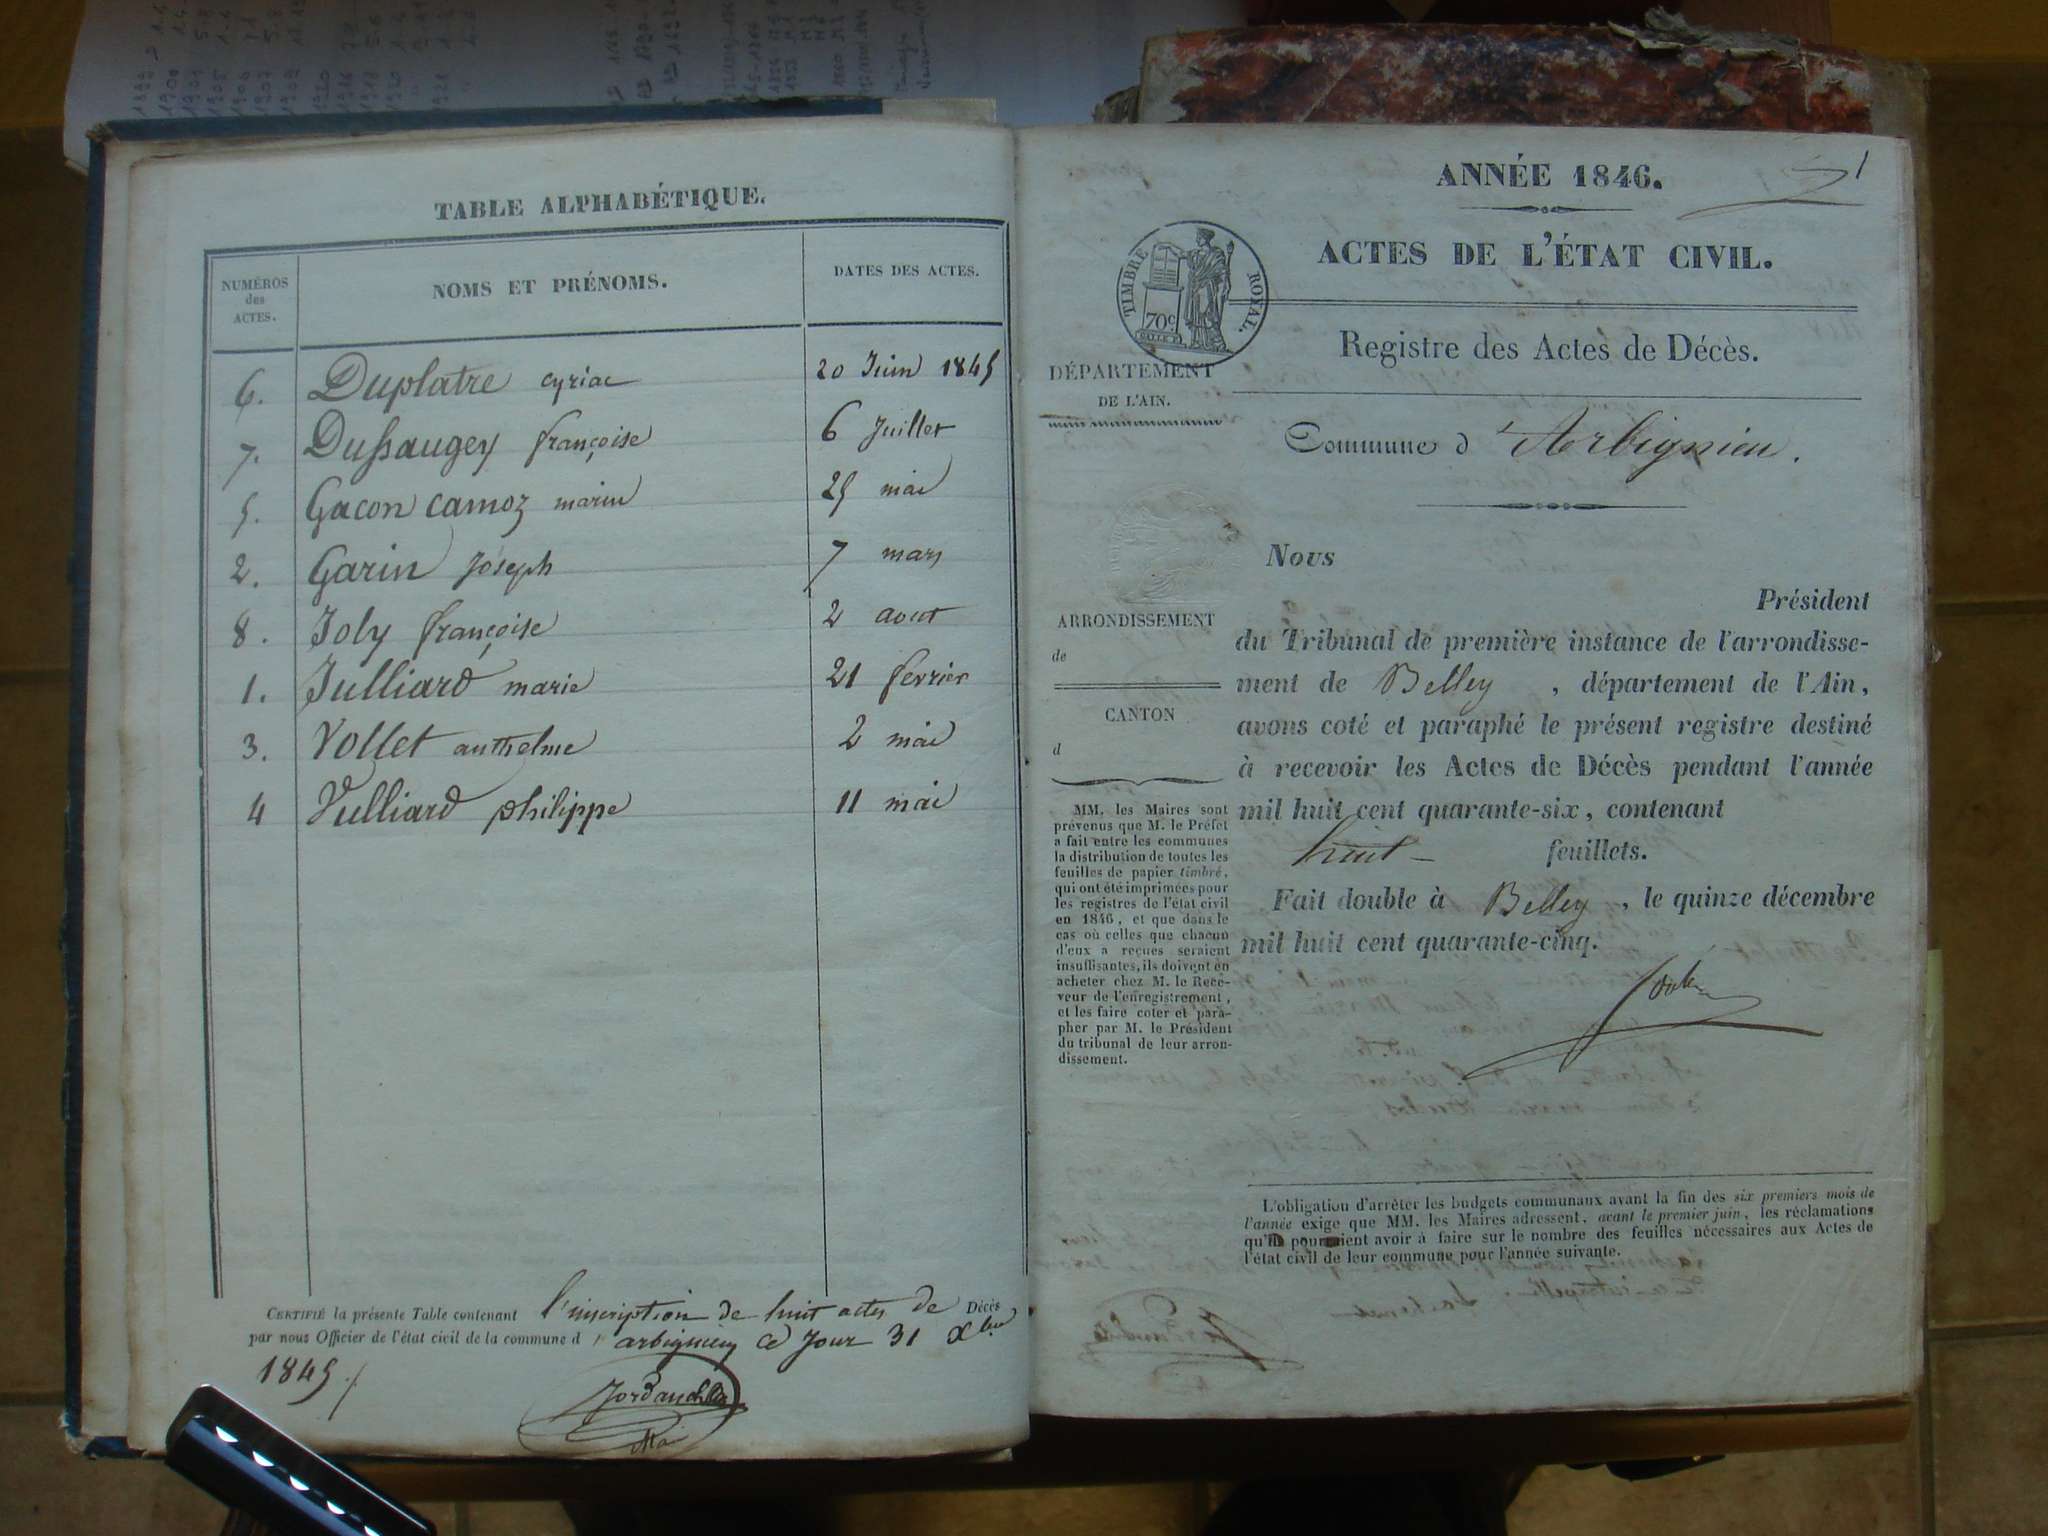 TABLE ALPHABÉTIQUE.
NUMÉROS
des
ACTES.
NOMS ET PRÉNOMS.
DATES DES ACTES.
6. Duplatre cyriac 20 Juin 1845
7. Dussaugey françoise 6 Juillet
5. Gacon camoz marie 25 mai
2. Garin Joseph 7 mars
8. Joly françoise 2 aout
1. Julliard marie 21 fevrier
3. Vollet anthelme 2 mai
4 Vulliard philippe 11 mai
CERTIFIÉ la présente Table contenant l'inscription de huit actes de Décès
par nous Officier de l'état civil de la commune d'arbignieu ce Jour 31 Xbre
1845
ANNÉE 1846.
1
ACTES DE L'ÉTAT CIVIL.
TIMBRE ROYAL.
70c
Registre des Actes de Décès.
DÉPARTEMENT
DE L'AIN.
Commune d'Arbignieu.
Nous
Président
du Tribunal de première instance de l'arrondisse-
ment de Belley, département de l'Ain,
avons coté et paraphé le présent registre destiné
à recevoir les Actes de Décès pendant l'année
mil huit cent quarante-six, contenant
huit feuillets.
Fait double à Belley, le quinze décembre
mil huit cent quarante-cinq.
ARRONDISSEMENT
de
CANTON
d
MM. les Maires sont
prévenus que M. le Préfet
a fait entre les communes
la distribution de toutes les
feuilles de papier timbré,
qui ont été imprimées pour
les registres de l'état civil
en 1846, et que dans le
cas où celles que chacun
d'eux a reçues seraient
insuffisantes, ils doivent en
acheter chez M. le Rece-
veur de l'enregistrement,
et les faire coter et para-
pher par M. le Président
du tribunal de leur arron-
dissement.
L'obligation d'arrêter les budgets communaux avant la fin des six premiers mois de
l'année exige que MM. les Maires adressent, avant le premier juin, les réclamations
qu'ils pourraient avoir à faire sur le nombre des feuilles nécessaires aux Actes de
l'état civil de leur commune pour l'année suivante.